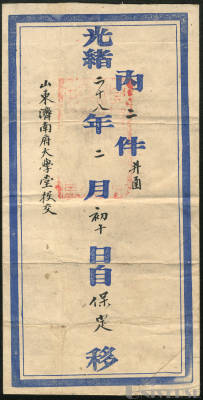 內二件并函
光緒二十八年二月初十日自保定移
山東濟南府大學堂投交